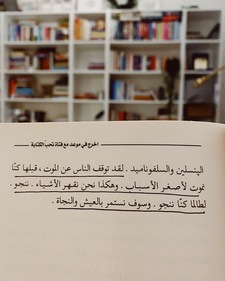 اخرج في موعد مع فتاة تحب الكتابة
البنسلين والسلفوناميد . لقد توقف الناس عن الموت ، قبلها كنّا
نموت لأصغر الأسباب . وهكذا نحن نقهر الأشياء . ننجو .
لطالما كنّا ننجو . وسوف نستمر بالعيش والنجاة .